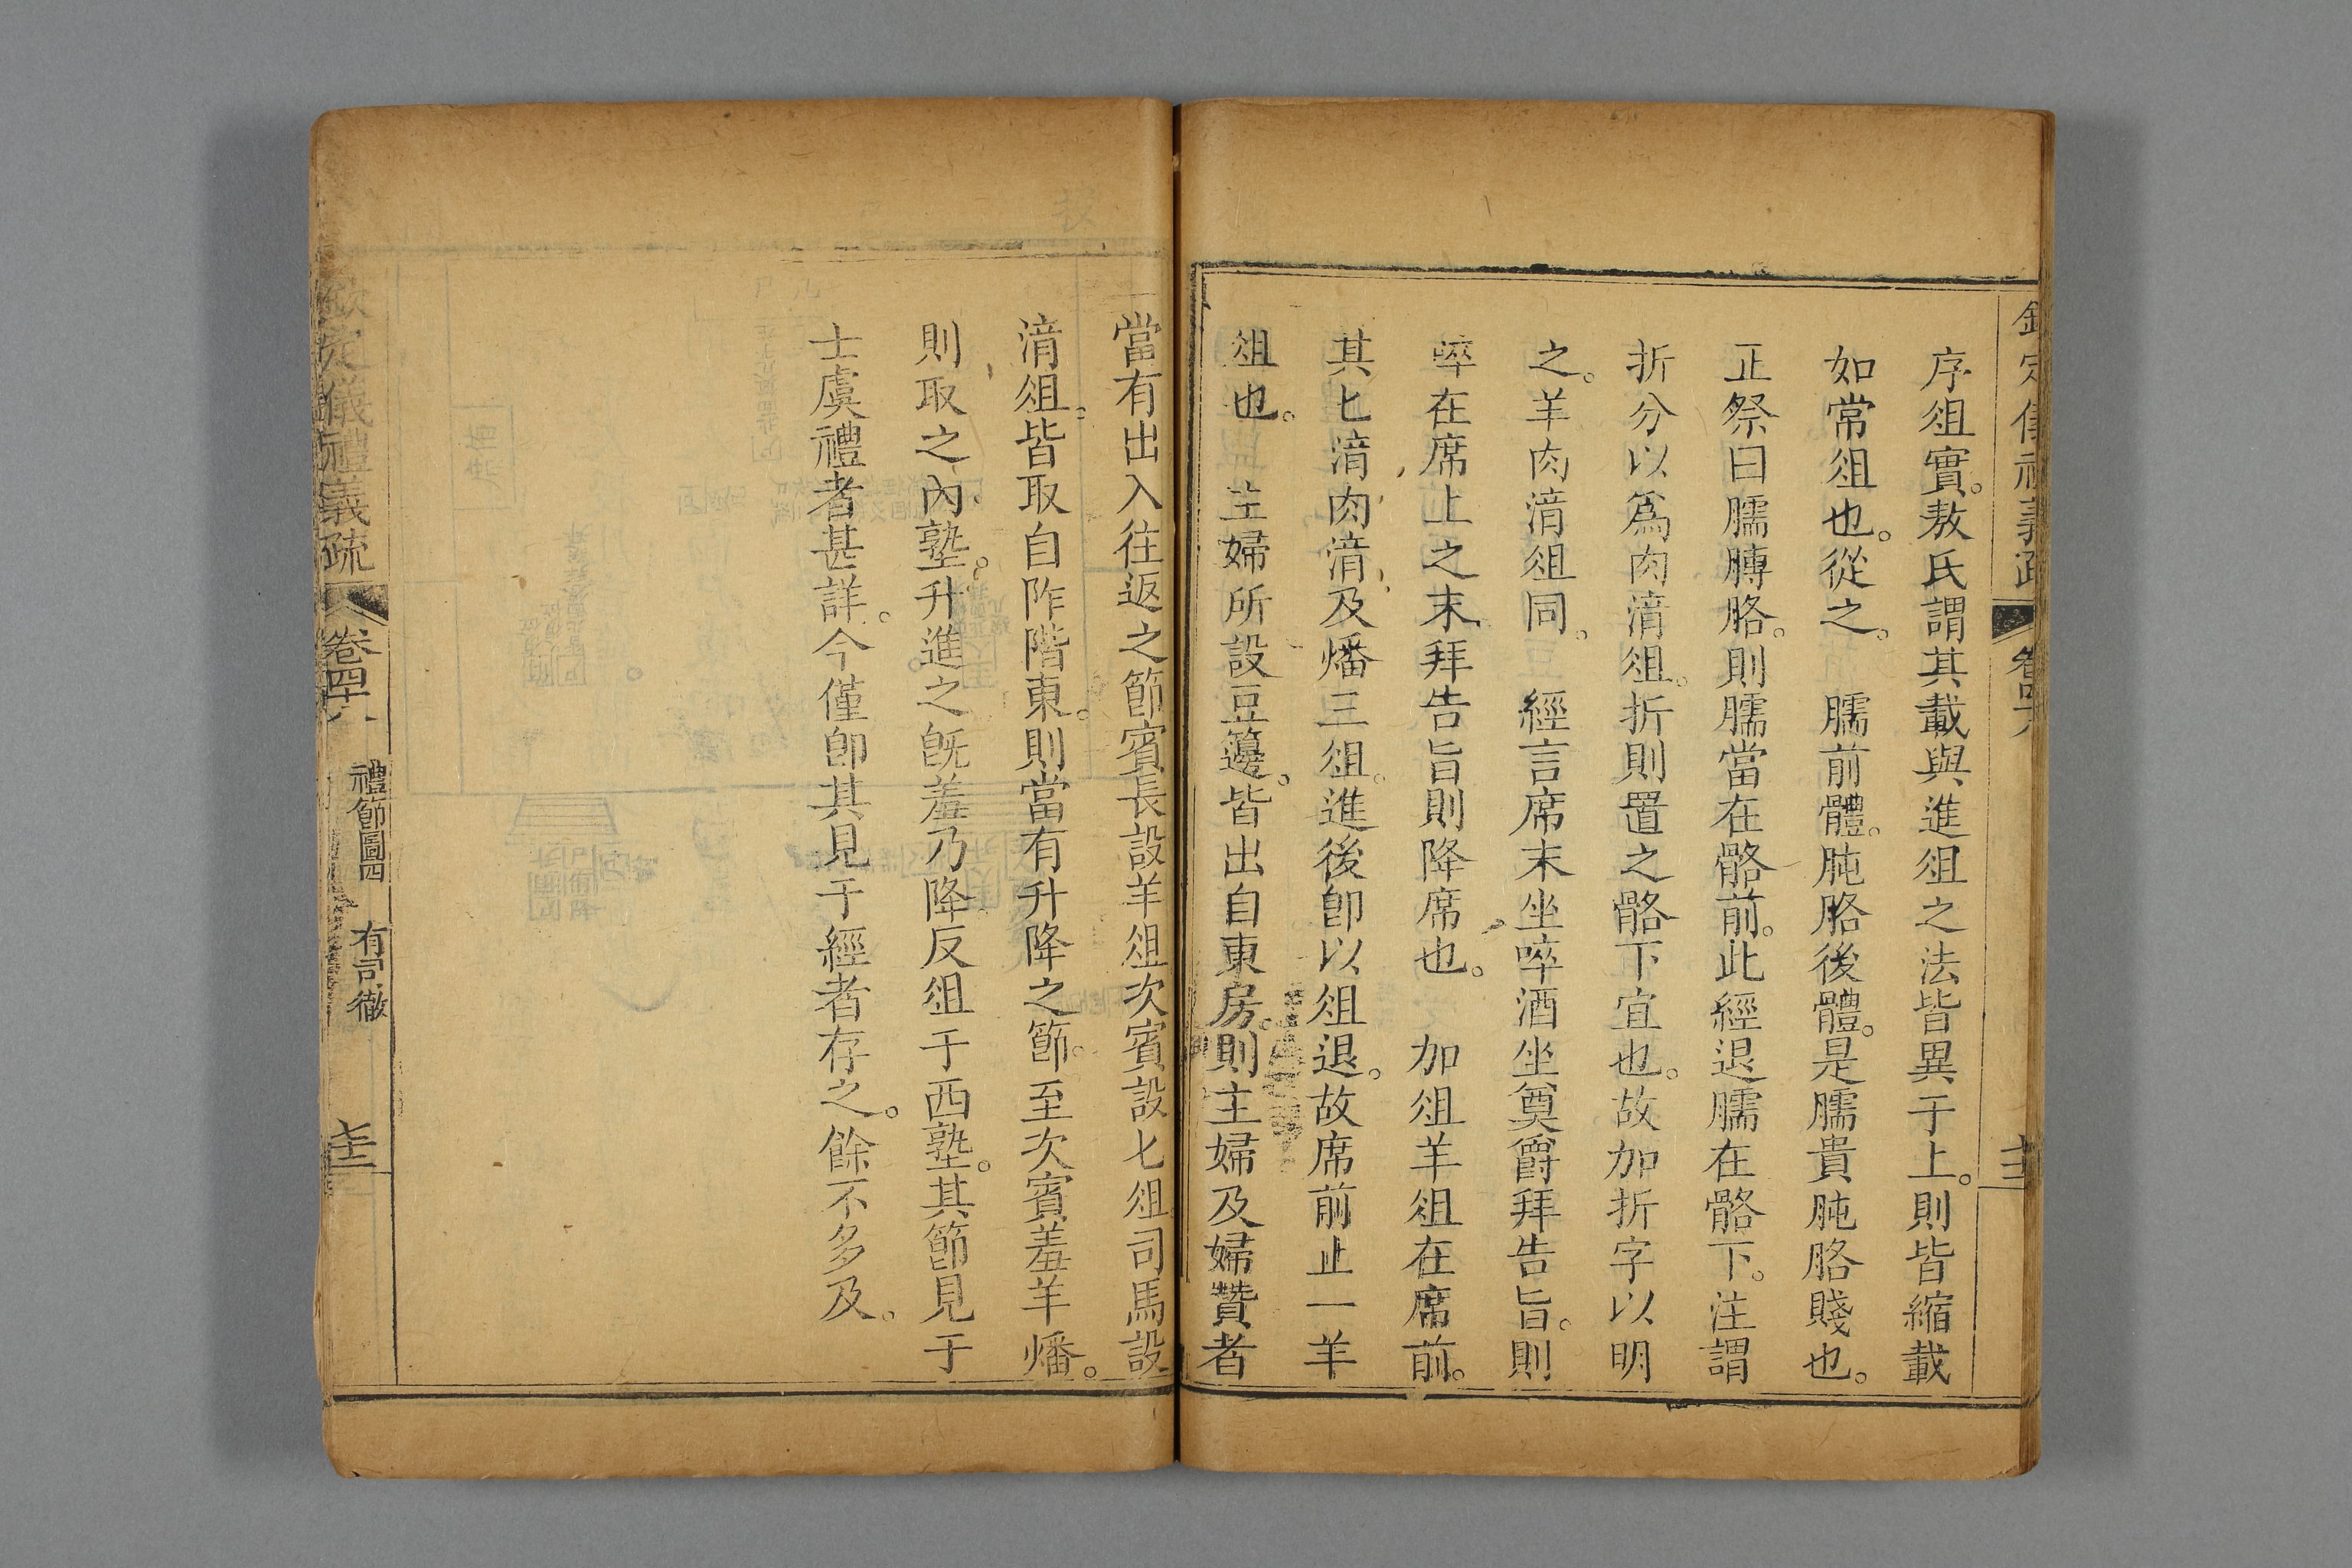 欽定儀禮義疏 卷四十八
序俎實。敖氏謂其載與進俎之法皆異于上。則皆縮載
如常俎也。從之。 臑前體。肫胳後體。是臑貴肫胳賤也。
正祭曰臑膊胳。則臑當在骼前。此經退臑在骼下。注謂
折分以爲肉湆俎。折則置之骼下宜也。故加折字以明
之。羊肉湆俎同。 經言席末坐啐酒坐奠爵拜告旨。則
啐在席上之末拜告旨則降席也。 加俎羊俎在席前。
其匕湆肉湆及燔三俎。進後卽以俎退。故席前止一羊
俎也。 主婦所設豆籩。皆出自東房。則主婦及婦贊者
當有出入往返之節賓長設羊俎次賓設匕俎司馬設
湆俎。皆取自阼階東。則當有升降之節。至次賓羞羊燔。
則取之內塾。升進之旣羞乃降反俎于西塾。其節見于
士虞禮者甚詳。今僅卽其見于經者存之。餘不多及。
欽定儀禮義疏 卷四十八 禮節圖四 有司徹